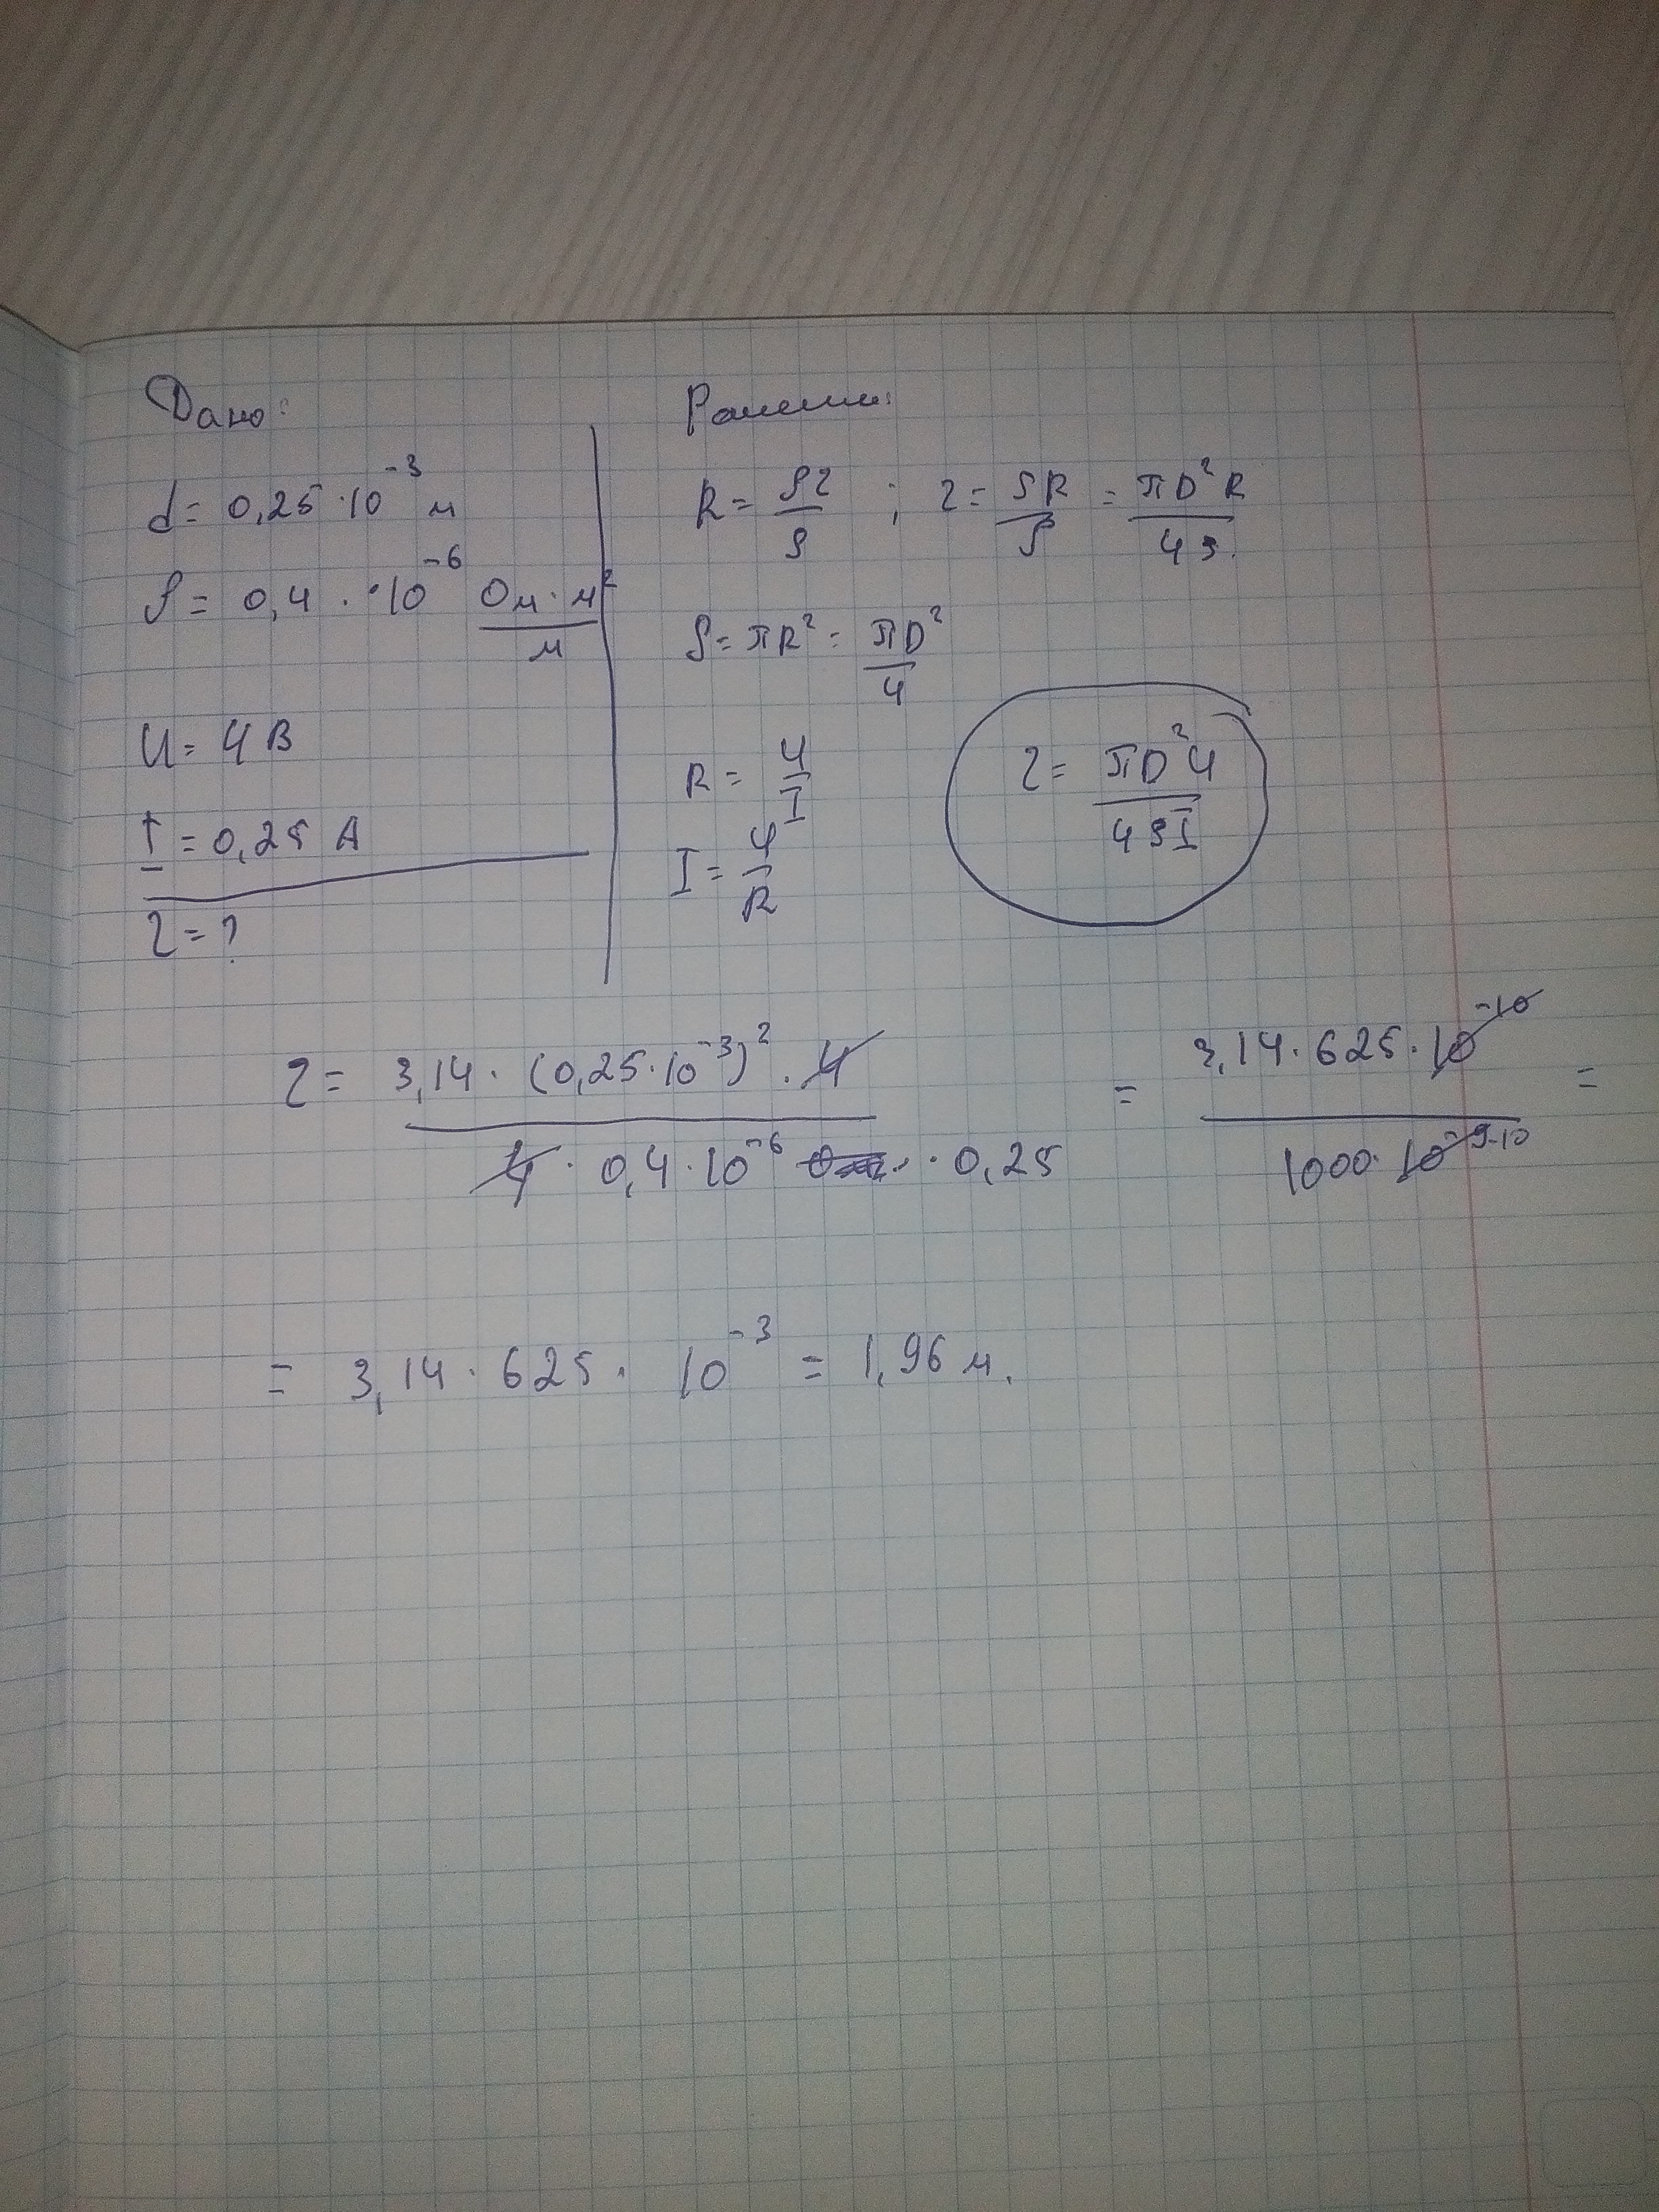 Дано:
d = 0,25 · 10⁻³ м
ρ = 0,4 · · 10⁻⁶ Ом · м² / м
U = 4 В
I = 0,25 А
l = ?
Решение:
R = ρl / S ; l = SR / ρ = πD²R / 4ρ.
S = πR² = πD² / 4
R = U / I
I = U / R
l = πD²U / 4ρI
l = 3,14 · (0,25 · 10⁻³)² · 4 / 4 · 0,4 · 10⁻⁶ · 0,25 = 3,14 · 625 · 10⁻¹⁰ / 1000 · 10⁻⁹⁻¹⁰ =
= 3,14 · 625 · 10⁻³ = 1,96 м.